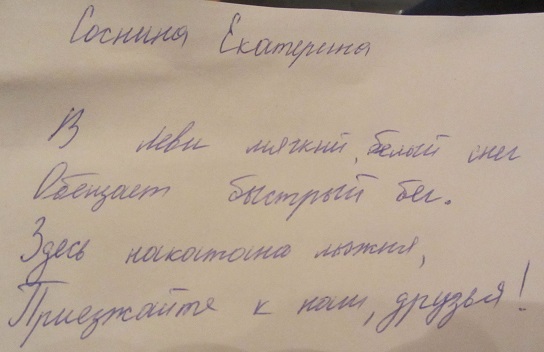 Соснина Екатерина
В Леви мягкий, белый снег
Обещает быстрый бег.
Здесь накатана лыжня,
Приезжайте к нам, друзья!